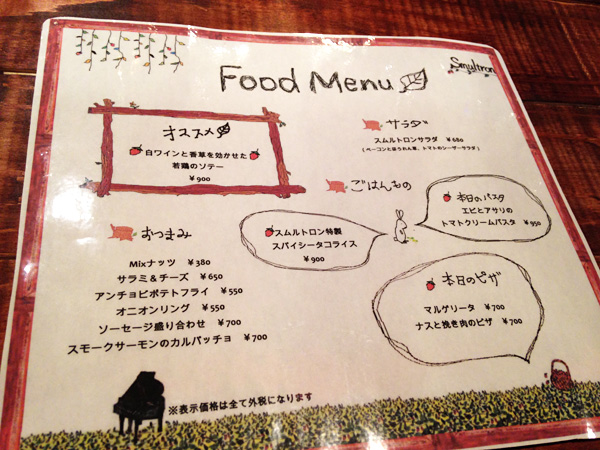 Smultron
Food Menu
オススメ
白ワインと香草を効かせた
若鶏のソテー
¥900
サラダ
スムルトロンサラダ ¥680
(ベーコンとほうれん草、トマトのシーザーサラダ)
ごはんもの
スムルトロン特製
スパイシータコライス
¥900
本日のパスタ
エビとアサリの
トマトクリームパスタ ¥950
おつまみ
Mixナッツ ¥380
サラミ&チーズ ¥650
アンチョビポテトフライ ¥550
オニオンリング ¥550
ソーセージ盛り合わせ ¥700
スモークサーモンのカルパッチョ ¥700
本日のピザ
マルゲリータ ¥700
ナスと挽き肉のピザ ¥700
※表示価格は全て外税になります